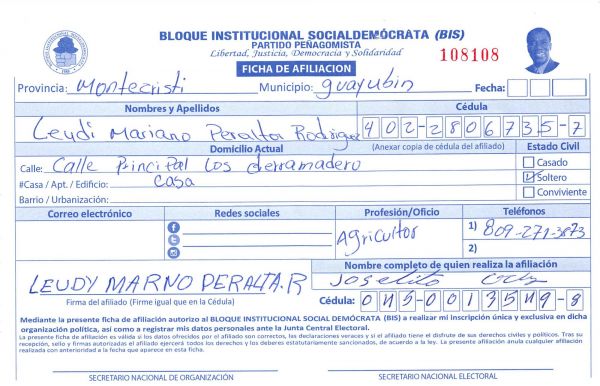 BLOQUE INSTITUCIONAL SOCIALDEMÓCRATA (BIS)
PARTIDO PEÑAGOMISTA
Libertad, Justicia, Democracia y Solidaridad
108108
FICHA DE AFILIACION
Provincia: Montecristi Municipio: guayubin Fecha:
Nombres y Apellidos Cédula
Leydi Mariano Peralta Rodriguez 402-2806735-7
Domicilio Actual (Anexar copia de cédula del afiliado) Estado Civil
Calle: Calle Principal Los derramadero Casado
#Casa / Apt. / Edificio: Casa Soltero
Barrio / Urbanización: Conviviente
Correo electrónico Redes sociales Profesión/Oficio Teléfonos
Agricultor 1) 809-271-3873
2)
Nombre completo de quien realiza la afiliación
LEUDY MARNO PERALTA.R Joselito
Firma del afiliado (Firme igual que en la Cédula) Cédula: 045-0013549-8
Mediante la presente ficha de afiliación autorizo al BLOQUE INSTITUCIONAL SOCIAL DEMÓCRATA (BIS) a realizar mi inscripción única y exclusiva en dicha
organización política, así como a registrar mis datos personales ante la Junta Central Electoral.
La presente ficha de afiliación es válida si los datos ofrecidos por el afiliado son correctos, las declaraciones veraces y si el afiliado tiene el disfrute de sus derechos civiles y políticos. Tras su
recepción, sello y firmas autorizadas el afiliado ejercerá todos los derechos y los deberes estatutariamente sancionados, de acuerdo a la ley. La presente afiliación anula cualquier afiliación
realizada con anterioridad a la fecha que aparece en esta ficha.
SECRETARIO NACIONAL DE ORGANIZACIÓN SECRETARIO NACIONAL ELECTORAL